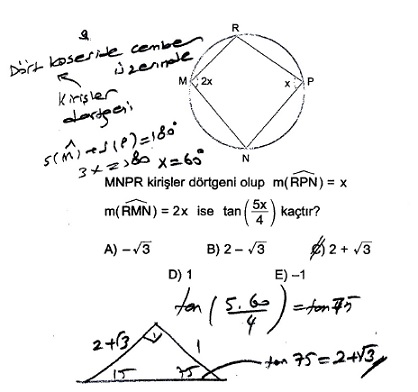 Dört köşeside çember
üzerinde
Kirişler
dörtgeni
R
M 2x x P
N
s(M̂)+s(P̂)=180°
3x=180 x=60°
MNPR kirişler dörtgeni olup m(RPN) = x
m(RMN) = 2x ise tan(5x/4) kaçtır?
A) −√3 B) 2 − √3 C) 2 + √3
D) 1 E) −1
tan(5.60/4)=tan75
2+√3 1
15 75 tan 75=2+√3